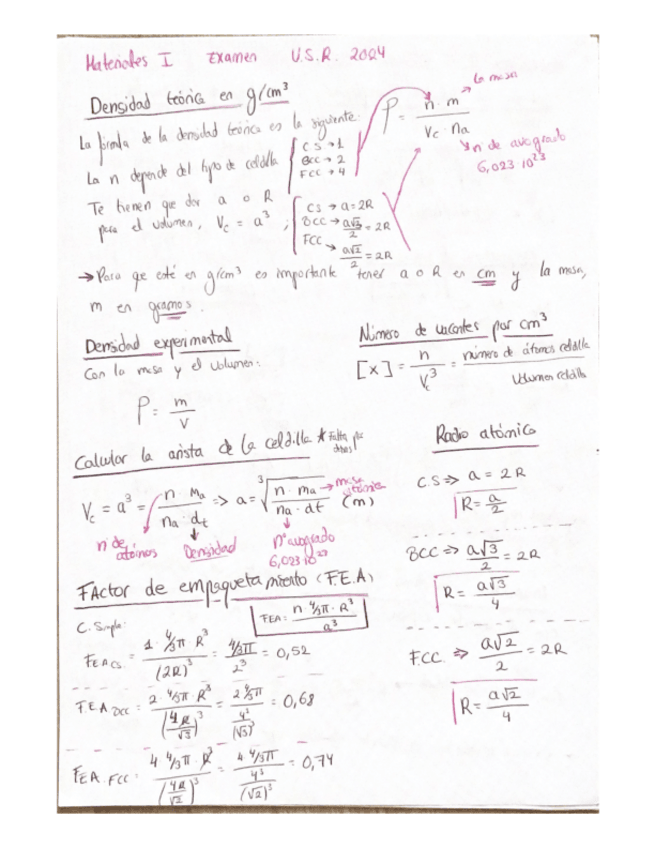 Materiales I Examen U.S.R. 2024
Densidad teórica en g/cm³
La fórmula de la densidad teórica es la siguiente:
ρ = n · m / Vc · na
la masa
n de avogrado
6,023·10²³
La n depende del tipo de celdilla
C.S → 1
BCC → 2
FCC → 4
Te tienen que dar a o R
para el volumen, Vc = a³ ;
CS → a = 2R
BCC → a√3/2 = 2R
FCC → a√2/2 = 2R
→ Para que esté en g/cm³ es importante tener a o R en cm y la masa,
m en gramos.
Densidad experimental
Con la masa y el volumen:
ρ = m/V
Número de vacantes por cm³
[x] = n/Vc³ = número de átomos celdilla / Volumen celdilla
Calcular la arista de la celdilla
Vc = a³ = n · Ma / na · dt => a = ³√(n · ma / na · dt) (m)
masa atómica
n de átomos
Densidad
Nº avogrado
6,023·10²³
Factor de empaquetamiento (F.E.A)
FEA = n · 4/3π · R³ / a³
C. Simple:
FEA CS. = 1 · 4/3π · R³ / (2R)³ = 4/3π / 2³ = 0,52
F.E.A BCC = 2 · 4/3π · R³ / (4R/√3)³ = 2 4/3π / 4³/(√3)³ = 0,68
FEA FCC = 4 · 4/3π · R³ / (4R/√2)³ = 4 · 4/3π / 4³/(√2)³ = 0,74
Radio atómico
C.S => a = 2R
R = a/2
BCC => a√3/2 = 2R
R = a√3/4
F.C.C. => a√2/2 = 2R
R = a√2/4